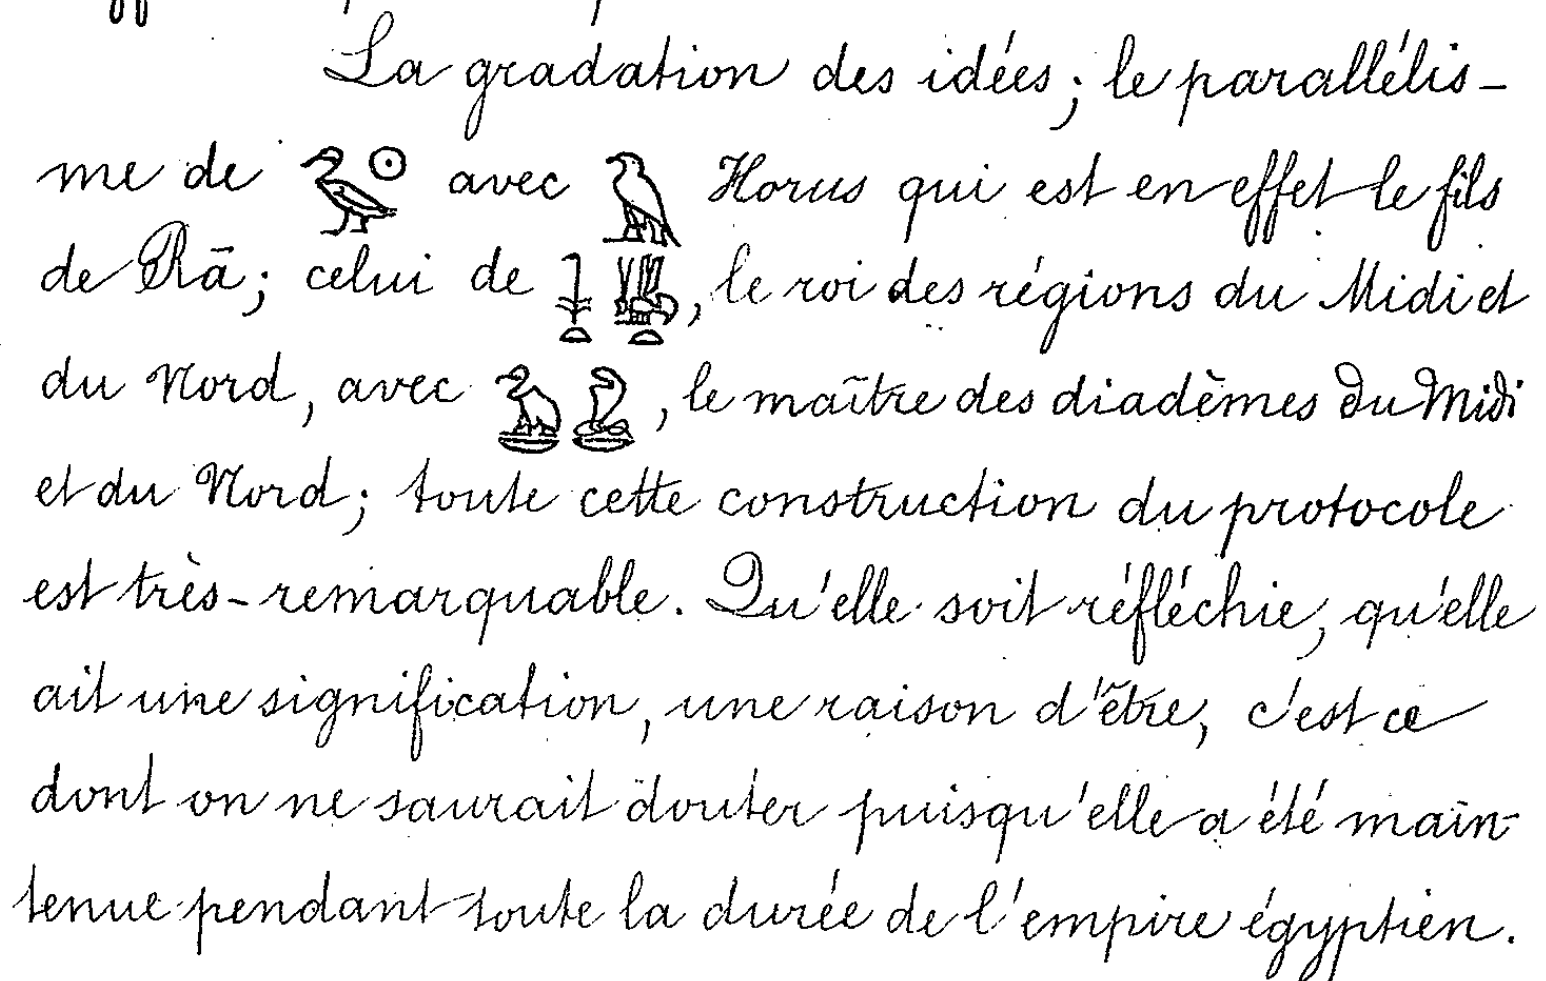 La gradation des idées; le parallélis-
me de 𓅭𓇳 avec 𓅃 Horus qui est en effet le fils
de Rā; celui de 𓇓𓏏𓆤𓏏, le roi des régions du Midi et
du Nord, avec 𓅒, le maître des diadèmes du Midi
et du Nord; toute cette construction du protocole
est très-remarquable. Qu'elle soit réfléchie, qu'elle
ait une signification, une raison d'être, c'est ce
dont on ne saurait douter puisqu'elle a été main-
tenue pendant toute la durée de l'empire égyptien.